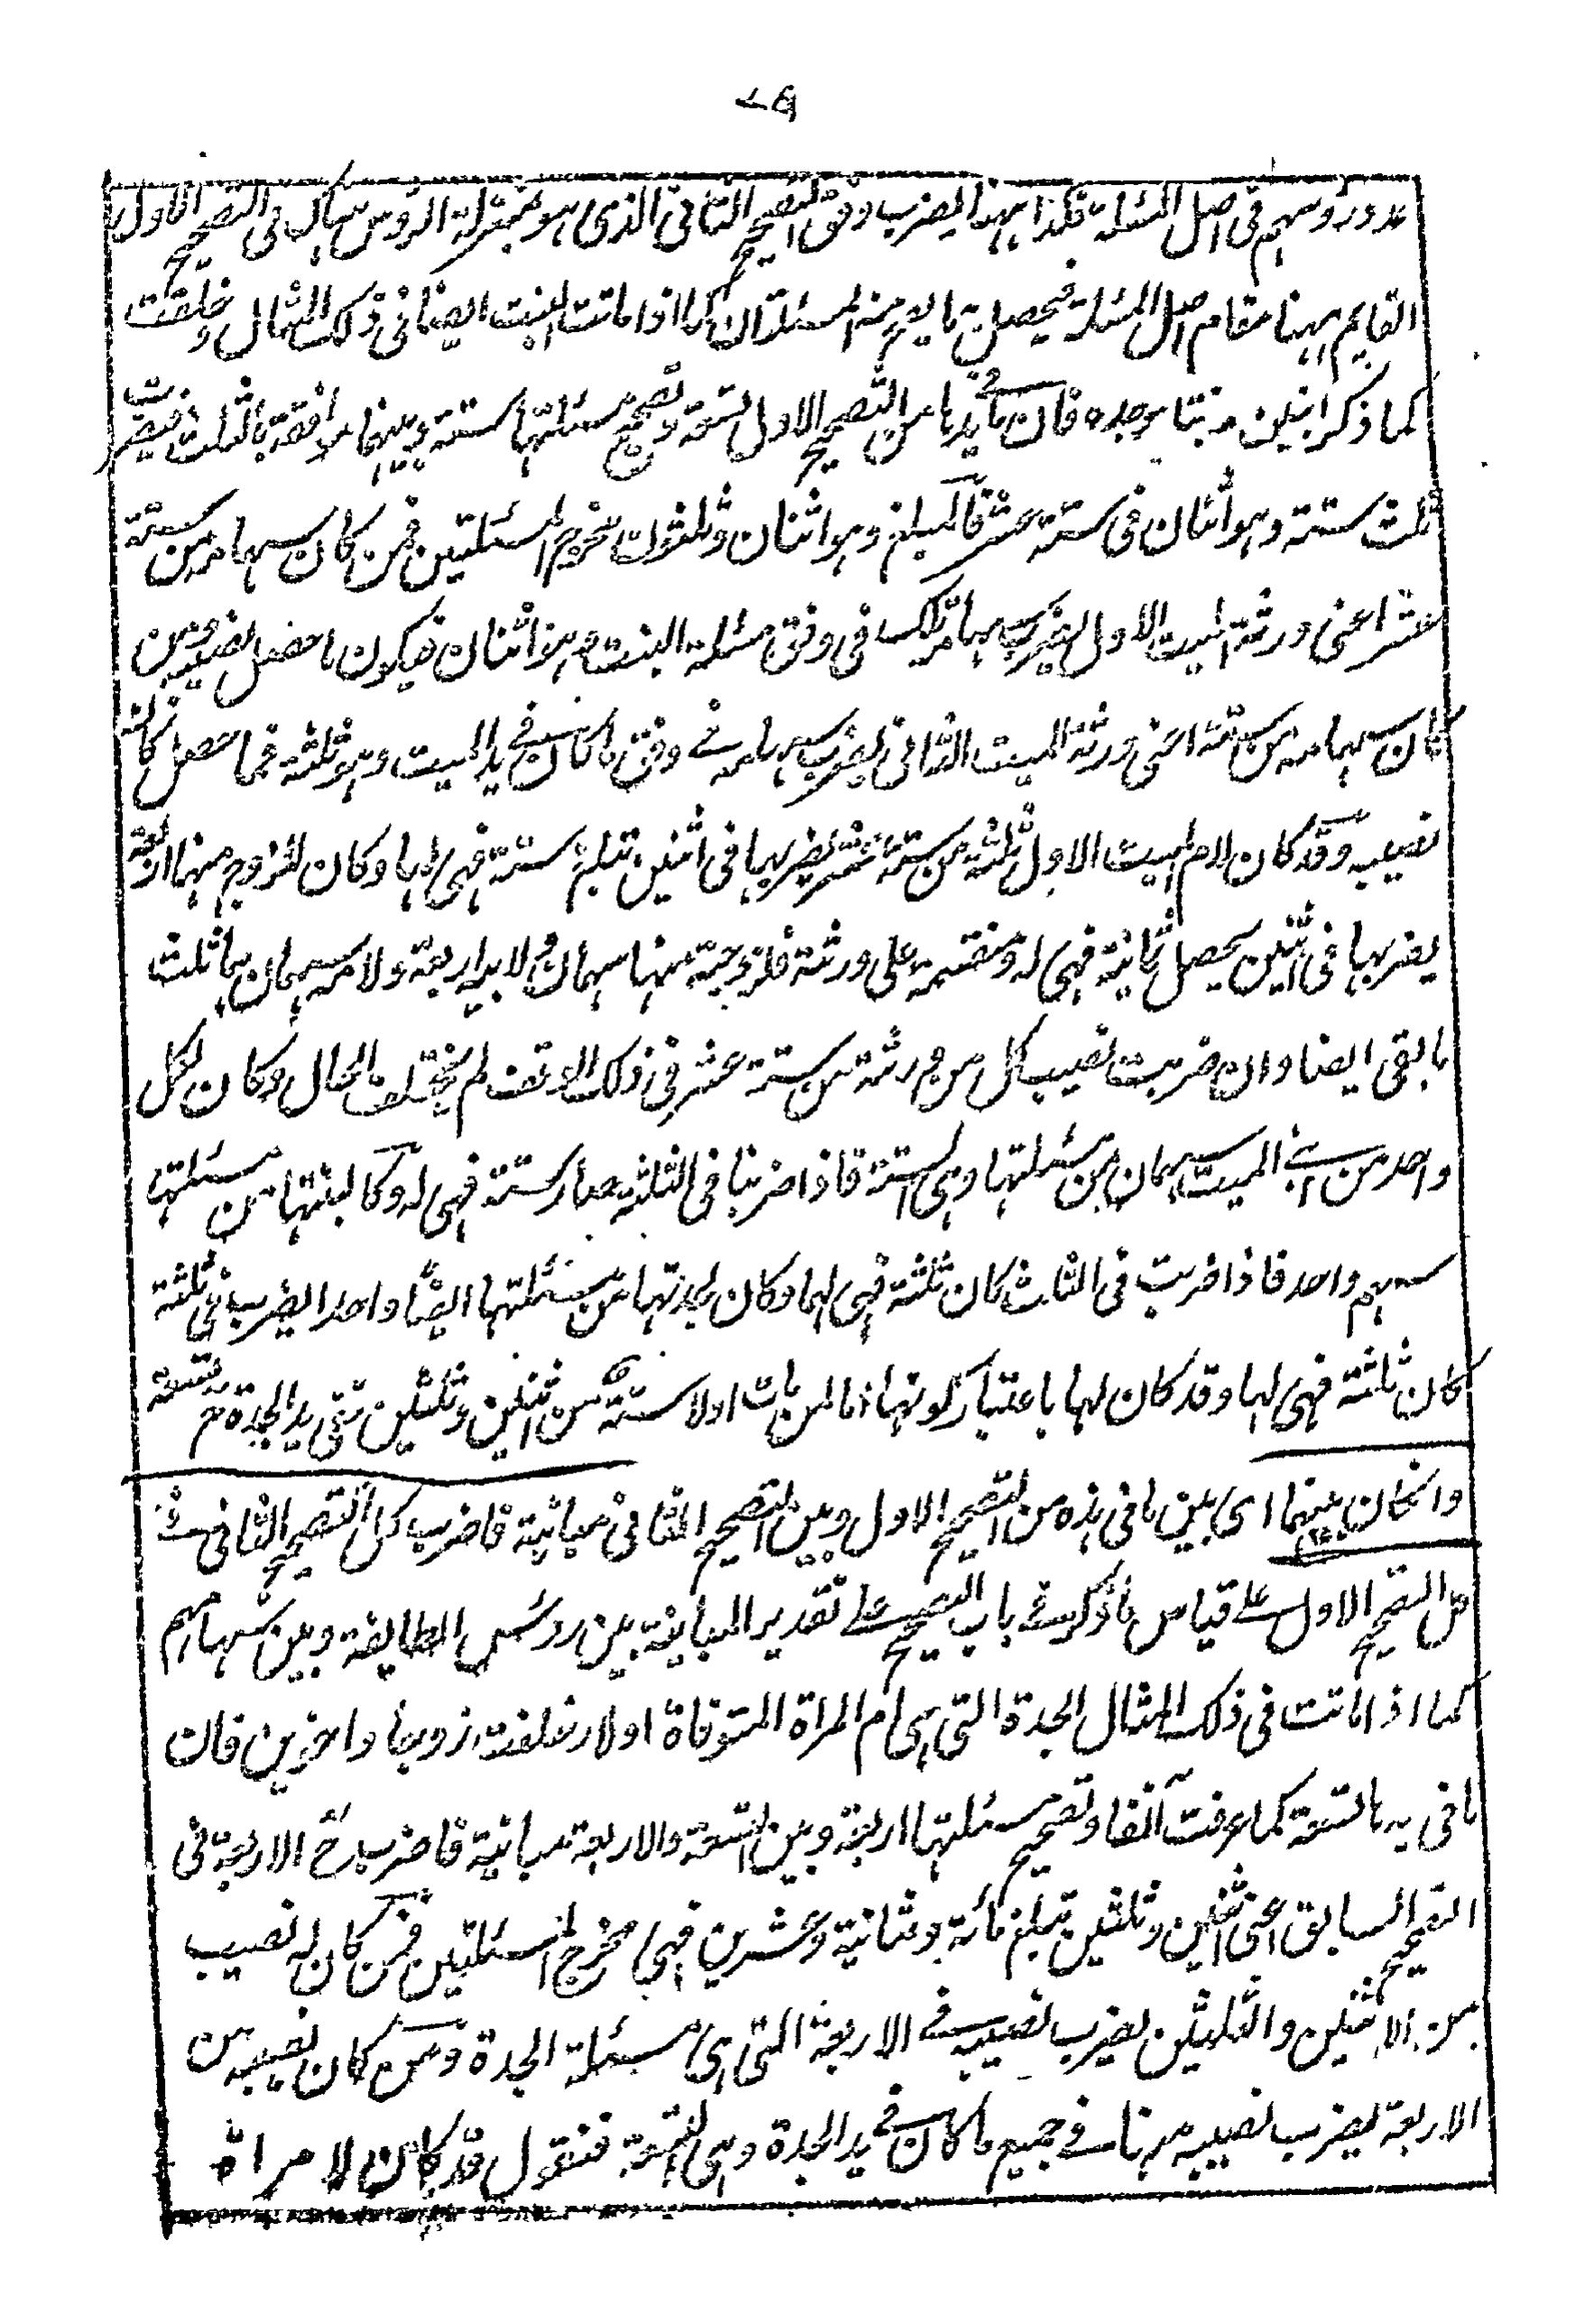 ٧٩
عدد رؤسهم فى اصل المسئلة فكذا ههنا يضرب وفق التصحيح الثانى الذى هو بمنزلة الرؤس هناك فى التصحيح الاول
القايم ههنا مقام اصل المسئلة فيحصل به ما يصح منه المسئلتان كما اذا ماتت البنت ايضا فى ذلك المثال وخلفت
كما ذكر ابنين و بنتا وجدة فان ما فى يدها من التصحيح الاول تسعة وتصحيح مسئلتها ستة وبينهما موافقة بالثلث فيضرب
ثلث ستة وهو اثنان فى ستة عشر فالمبلغ وهو اثنان وثلثون مخرج المسئلتين فمن كان سهامه من ستة
عشر اعنى ورثة الميت الاول يضرب سهامه تلك فى وفق مسئلة البنت وهو اثنان فيكون ما حصل نصيبه ومن
كان سهامه من ستة اعنى ورثة الميت الثانى يضرب سهامه فى وفق ما كان فى يد الميت وهو ثلثة فما حصل كان
نصيبه وقد كان لام الميت الاول ثلثة من ستة عشر يضربها فى اثنين تبلغ ستة فهى لها وكان للزوج منها اربعة
يضربها فى اثنين يحصل ثمانية فهى له ومنقسمة على ورثته فلزوجته منها سهمان ولابيه اربعة ولامه سهمان هما ثلث
ما بقى ايضا وان ضربت نصيب كل من ورثته من ستة عشر فى ذلك الوفق لم يختلف الحال وكان لكل
واحد من ابنى الميت سهمان من مسئلتها وهى الستة فاذا ضربنا فى الثلثة صار ستة فهى له وكان لبنتها من مسئلتها
سهم واحد فاذا ضربت فى الثلث كان ثلثة فهى لها وكان لجدتها من مسئلتها ايضا واحد ايضرب فى ثلثة
كان ثلثة فهى لها وقد كان لها باعتبار كونها اما لمن مات اولا ستة من اثنين وثلثين ففى يد الجدة تسعة
وانكان بينهما اى بين ما فى يده من التصحيح الاول وبين التصحيح الثانى مباينة فاضرب كل التصحيح الثانى فى
كل التصحيح الاول على قياس ما ذكر فى باب التصحيح على تقدير المباينة بين رؤس الطايفة وبين سهامهم
كما اذا ماتت فى ذلك المثال الجدة التى هى ام المراة المتوفاة اولا وخلفت زوجا واخوين فان
ما فى يدها تسعة كما عرفت آنفا وتصحيح مسئلتها اربعة وبين التسعة والاربعة مباينة فاضرب ح الاربعة فى
التصحيح السابق اعنى اثنين وثلثين تبلغ مائة وثمانية وعشرين فهى مخرج المسئلتين فمن كان له نصيب
من الاثنين والثلثين يضرب نصيبه فى الاربعة التى هى مسئلة الجدة ومن كان نصيبه من
الاربعة يضرب نصيبه منها فى جميع ما كان فى يد الجدة وهى التسعة فنقول قد كان لامراة